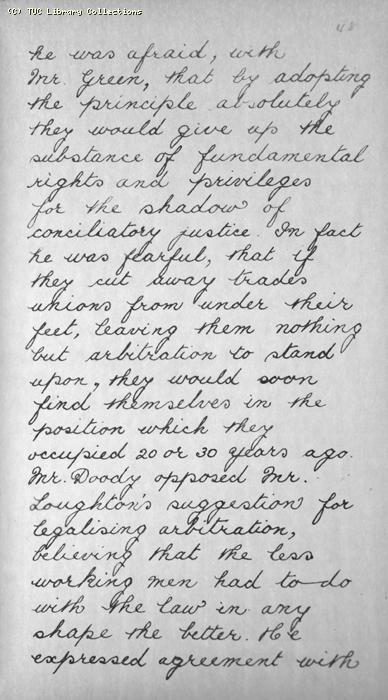 (C) TUC Library Collections
48
he was afraid, with
Mr. Green, that by adopting
the principle absolutely
they would give up the
substance of fundamental
rights and privileges
for the shadow of
conciliatory justice. In fact
he was fearful, that if
they cut away trades
unions from under their
feet, leaving them nothing
but arbitration to stand
upon, they would soon
find themselves in the
position which they
occupied 20 or 30 years ago.
Mr. Doody opposed Mr.
Loughton's suggestion for
legalising arbitration,
believing that the less
working men had to do
with the law in any
shape the better. He
expressed agreement with